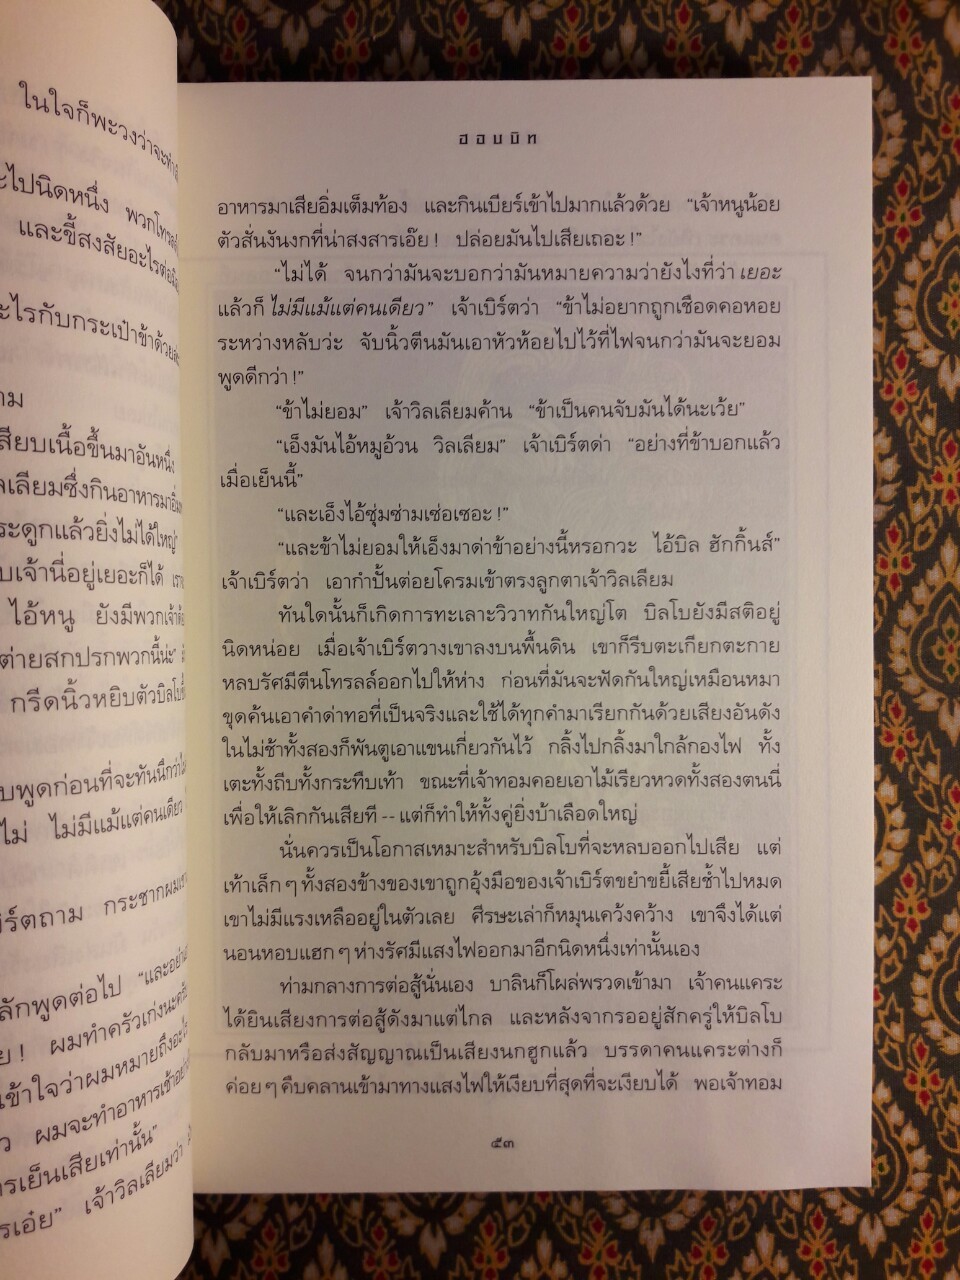 ในใจก็พะวงว่าจะทำ
ะไปนิดหนึ่ง พวกโทรลล์
และขี้สงสัยอะไรต่อ
ะไรกับกระเป๋าข้าด้วย
าม
สียบเนื้อขึ้นมาอันหนึ่ง
ลเลียมซึ่งกินอาหารมาอิ่ม
ระดูกแล้วยิ่งไม่ได้ใหญ่"
บเจ้านี่อยู่เยอะก็ได้ เรา
ไอ้หนู ยังมีพวกเจ้า
ต่ายสกปรกพวกนี้น่ะ"
กรีดนิ้วหยิบตัวบิลโบ
บพูดก่อนที่จะทันนึกว่า
ไม่ ไม่มีแม้แต่คนเดียว
ิร์ตถาม กระชากผม
ลักพูดต่อไป "และอย่า
ย ! ผมทำครัวเก่งนะครับ
เข้าใจว่าผมหมายถึงอะไร
ว ผมจะทำอาหารเช้า
ารเย็นเสียเท่านั้น"
รเอ๋ย" เจ้าวิลเลียมว่า
ฮอบบิท
อาหารมาเสียอิ่มเต็มท้อง และกินเบียร์เข้าไปมากแล้วด้วย "เจ้าหนูน้อย
ตัวสั่นงันงกที่น่าสงสารเอ๊ย ! ปล่อยมันไปเสียเถอะ !"
"ไม่ได้ จนกว่ามันจะบอกว่ามันหมายความว่ายังไงที่ว่า เยอะ
แล้วก็ ไม่มีแม้แต่คนเดียว" เจ้าเบิร์ตว่า "ข้าไม่อยากถูกเชือดคอหอย
ระหว่างหลับว่ะ จับนิ้วตีนมันเอาหัวห้อยไปไว้ที่ไฟจนกว่ามันจะยอม
พูดดีกว่า !"
"ข้าไม่ยอม" เจ้าวิลเลียมค้าน "ข้าเป็นคนจับมันได้นะเว้ย"
"เอ็งมันไอ้หมูอ้วน วิลเลียม" เจ้าเบิร์ตด่า "อย่างที่ข้าบอกแล้ว
เมื่อเย็นนี้"
"และเอ็งไอ้ซุ่มซ่ามเซ่อเซอะ !"
"และข้าไม่ยอมให้เอ็งมาด่าข้าอย่างนี้หรอกวะ ไอ้บิล ฮักกิ้นส์"
เจ้าเบิร์ตว่า เอากำปั้นต่อยโครมเข้าตรงลูกตาเจ้าวิลเลียม
ทันใดนั้นก็เกิดการทะเลาะวิวาทกันใหญ่โต บิลโบยังมีสติอยู่
นิดหน่อย เมื่อเจ้าเบิร์ตวางเขาลงบนพื้นดิน เขาก็รีบตะเกียกตะกาย
หลบรัศมีตีนโทรลล์ออกไปให้ห่าง ก่อนที่มันจะฟัดกันใหญ่เหมือนหมา
ขุดค้นเอาคำด่าทอที่เป็นจริงและใช้ได้ทุกคำมาเรียกกันด้วยเสียงอันดัง
ในไม่ช้าทั้งสองก็พันตูเอาแขนเกี่ยวกันไว้ กลิ้งไปกลิ้งมาใกล้กองไฟ ทั้ง
เตะทั้งถีบทั้งกระทืบเท้า ขณะที่เจ้าทอมคอยเอาไม้เรียวหวดทั้งสองตนนี่
เพื่อให้เลิกกันเสียที -- แต่ก็ทำให้ทั้งคู่ยิ่งบ้าเลือดใหญ่
นั่นควรเป็นโอกาสเหมาะสำหรับบิลโบที่จะหลบออกไปเสีย แต่
เท้าเล็ก ๆ ทั้งสองข้างของเขาถูกอุ้งมือของเจ้าเบิร์ตขยำขยี้เสียช้ำไปหมด
เขาไม่มีแรงเหลืออยู่ในตัวเลย ศีรษะเล่าก็หมุนเคว้งคว้าง เขาจึงได้แต่
นอนหอบแฮก ๆ ห่างรัศมีแสงไฟออกมาอีกนิดหนึ่งเท่านั้นเอง
ท่ามกลางการต่อสู้นั่นเอง บาลินก็โผล่พรวดเข้ามา เจ้าคนแคระ
ได้ยินเสียงการต่อสู้ดังมาแต่ไกล และหลังจากรออยู่สักครู่ให้บิลโบ
กลับมาหรือส่งสัญญาณเป็นเสียงนกฮูกแล้ว บรรดาคนแคระต่างก็
ค่อย ๆ คืบคลานเข้ามาทางแสงไฟให้เงียบที่สุดที่จะเงียบได้ พอเจ้าทอม
๕๓